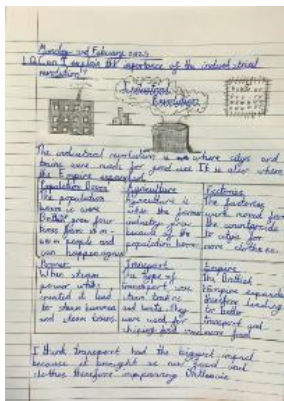 Monday 3rd February 2025
LQ Can I explain the importance of the industrial
revolution?
Industrial
Revolution
The industrial revolution is where citys and
trains were made for good use. It is also where
the Empire expanded.
Population Boom
The population
boom is were
British grew four
times from
people and
can happen again
Agriculture
Agriculture is
when the farmer
industry grew
because of the
population boom
Factories
The factories
work moved from
the countryside
to citys for
more clothes etc.
Power
When steam
power was
created it lead
to steam
and steam trains
Transport
The type of
transport were
steam trains
and boats. They
were used for
shipping food
Empire
The British
Empire expanded
therefore leading
to better
transport and
more food
I think transport had the biggest impact
because it brought us our food and
clothes therefore improving